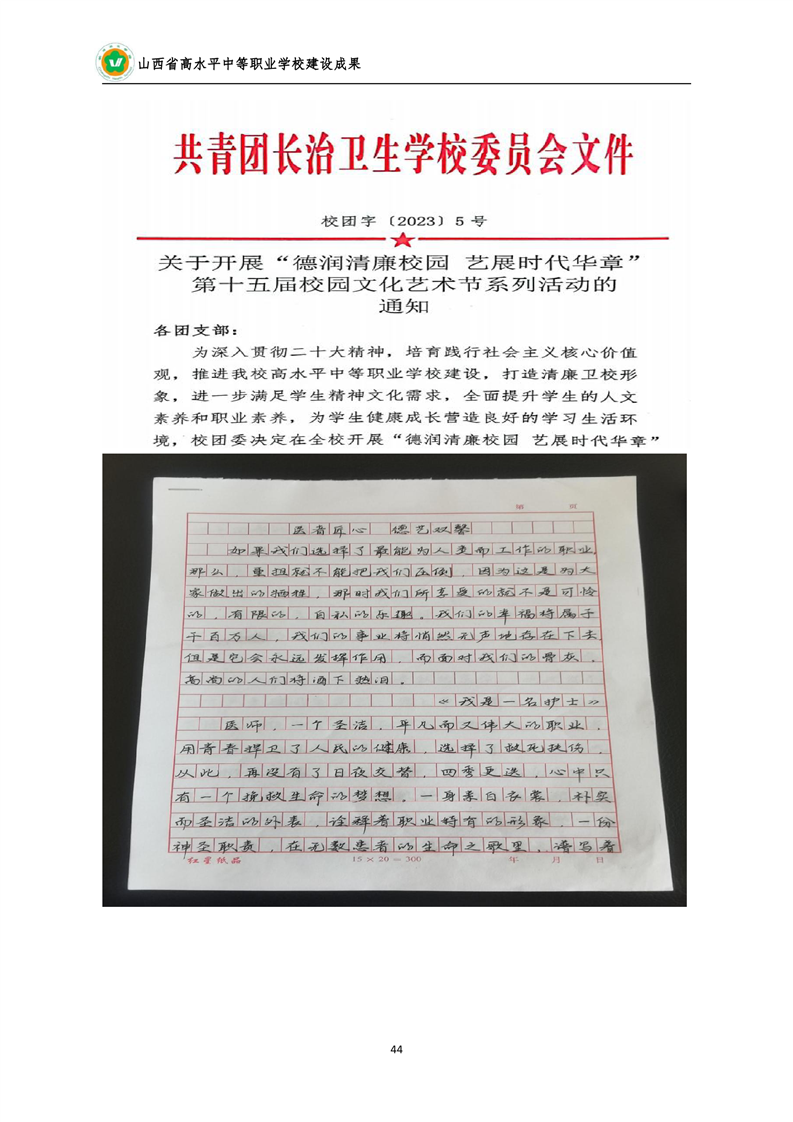 山西省高水平中等职业学校建设成果
共青团长治卫生学校委员会文件
校团字〔2023〕5号
关于开展“德润清廉校园 艺展时代华章”
第十五届校园文化艺术节系列活动的
通知
各团支部：
为深入贯彻二十大精神，培育践行社会主义核心价值
观，推进我校高水平中等职业学校建设，打造清廉卫校形
象，进一步满足学生精神文化需求，全面提升学生的人文
素养和职业素养，为学生健康成长营造良好的学习生活环
境，校团委决定在全校开展“德润清廉校园 艺展时代华章”
第 页
医者匠心 德艺双馨
如果我们选择了最能为人类而工作的职业
那么，重担就不能把我们压倒，因为这是为大
家做出的牺牲，那时我们所享受的就不是可怜
的，有限的，自私的乐趣。我们的幸福将属于
千百万人，我们的事业将悄然无声地存在下去
但是它会永远发挥作用，而面对我们的骨灰，
高尚的人们将洒下热泪。
《我是一名护士》
医师，一个圣洁，平凡而又伟大的职业，
用青春捍卫了人民的健康，选择了救死扶伤，
从此，再没有了日夜交替，四季更迭，心中只
有一个挽救生命的梦想。一身素白衣裳，朴实
而圣洁的外表，诠释着职业特有的形象，一份
神圣职责，在无数患者的生命之歌里，谱写着
红星纸品 15×20=300 年 月 日
44